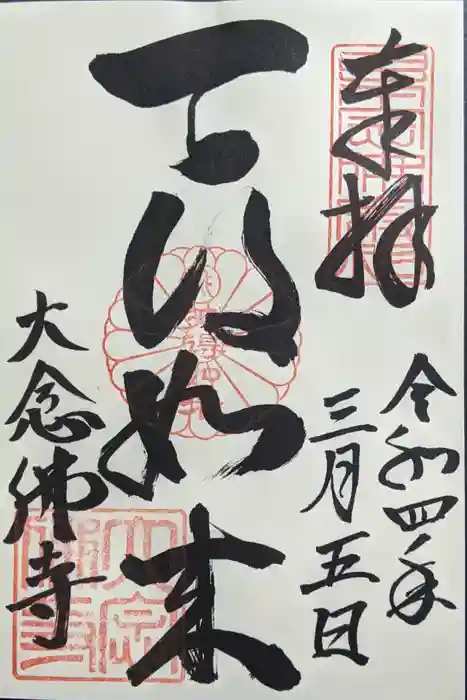 奉拝
令和四年
三月五日
天得如来
大念佛寺
大念佛寺